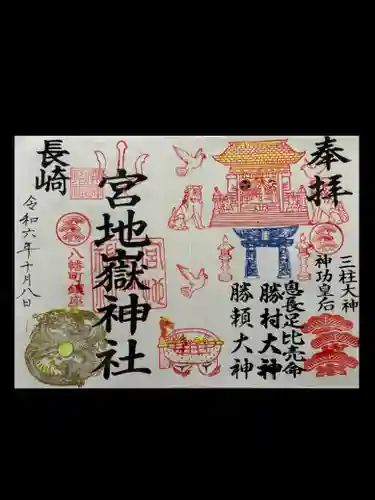 奉拝
三柱大神
神功皇后
息長足比売命
勝村大神
勝頼大神
長崎
宮地嶽神社
八幡町鎮座
令和六年十月八日